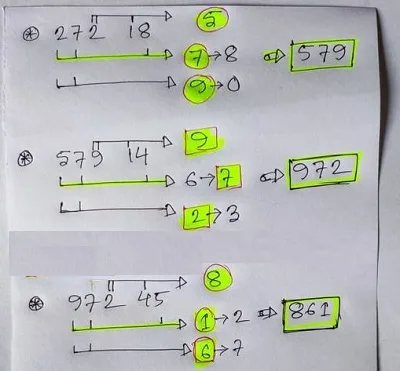 5
⊛ 272 18
7→8 ⇨ 579
9→0
9
⊛ 579 14
6→7 ⇨ 972
2→3
8
⊛ 972 45
1→2 ⇨ 861
6→7